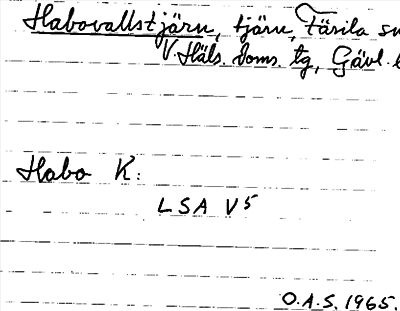 Habovallstjärn, tjärn, Färila sn
V. Häls. doms. tg, Gävl. l
Habo K:
LSA V5
O.A.S. 1965.